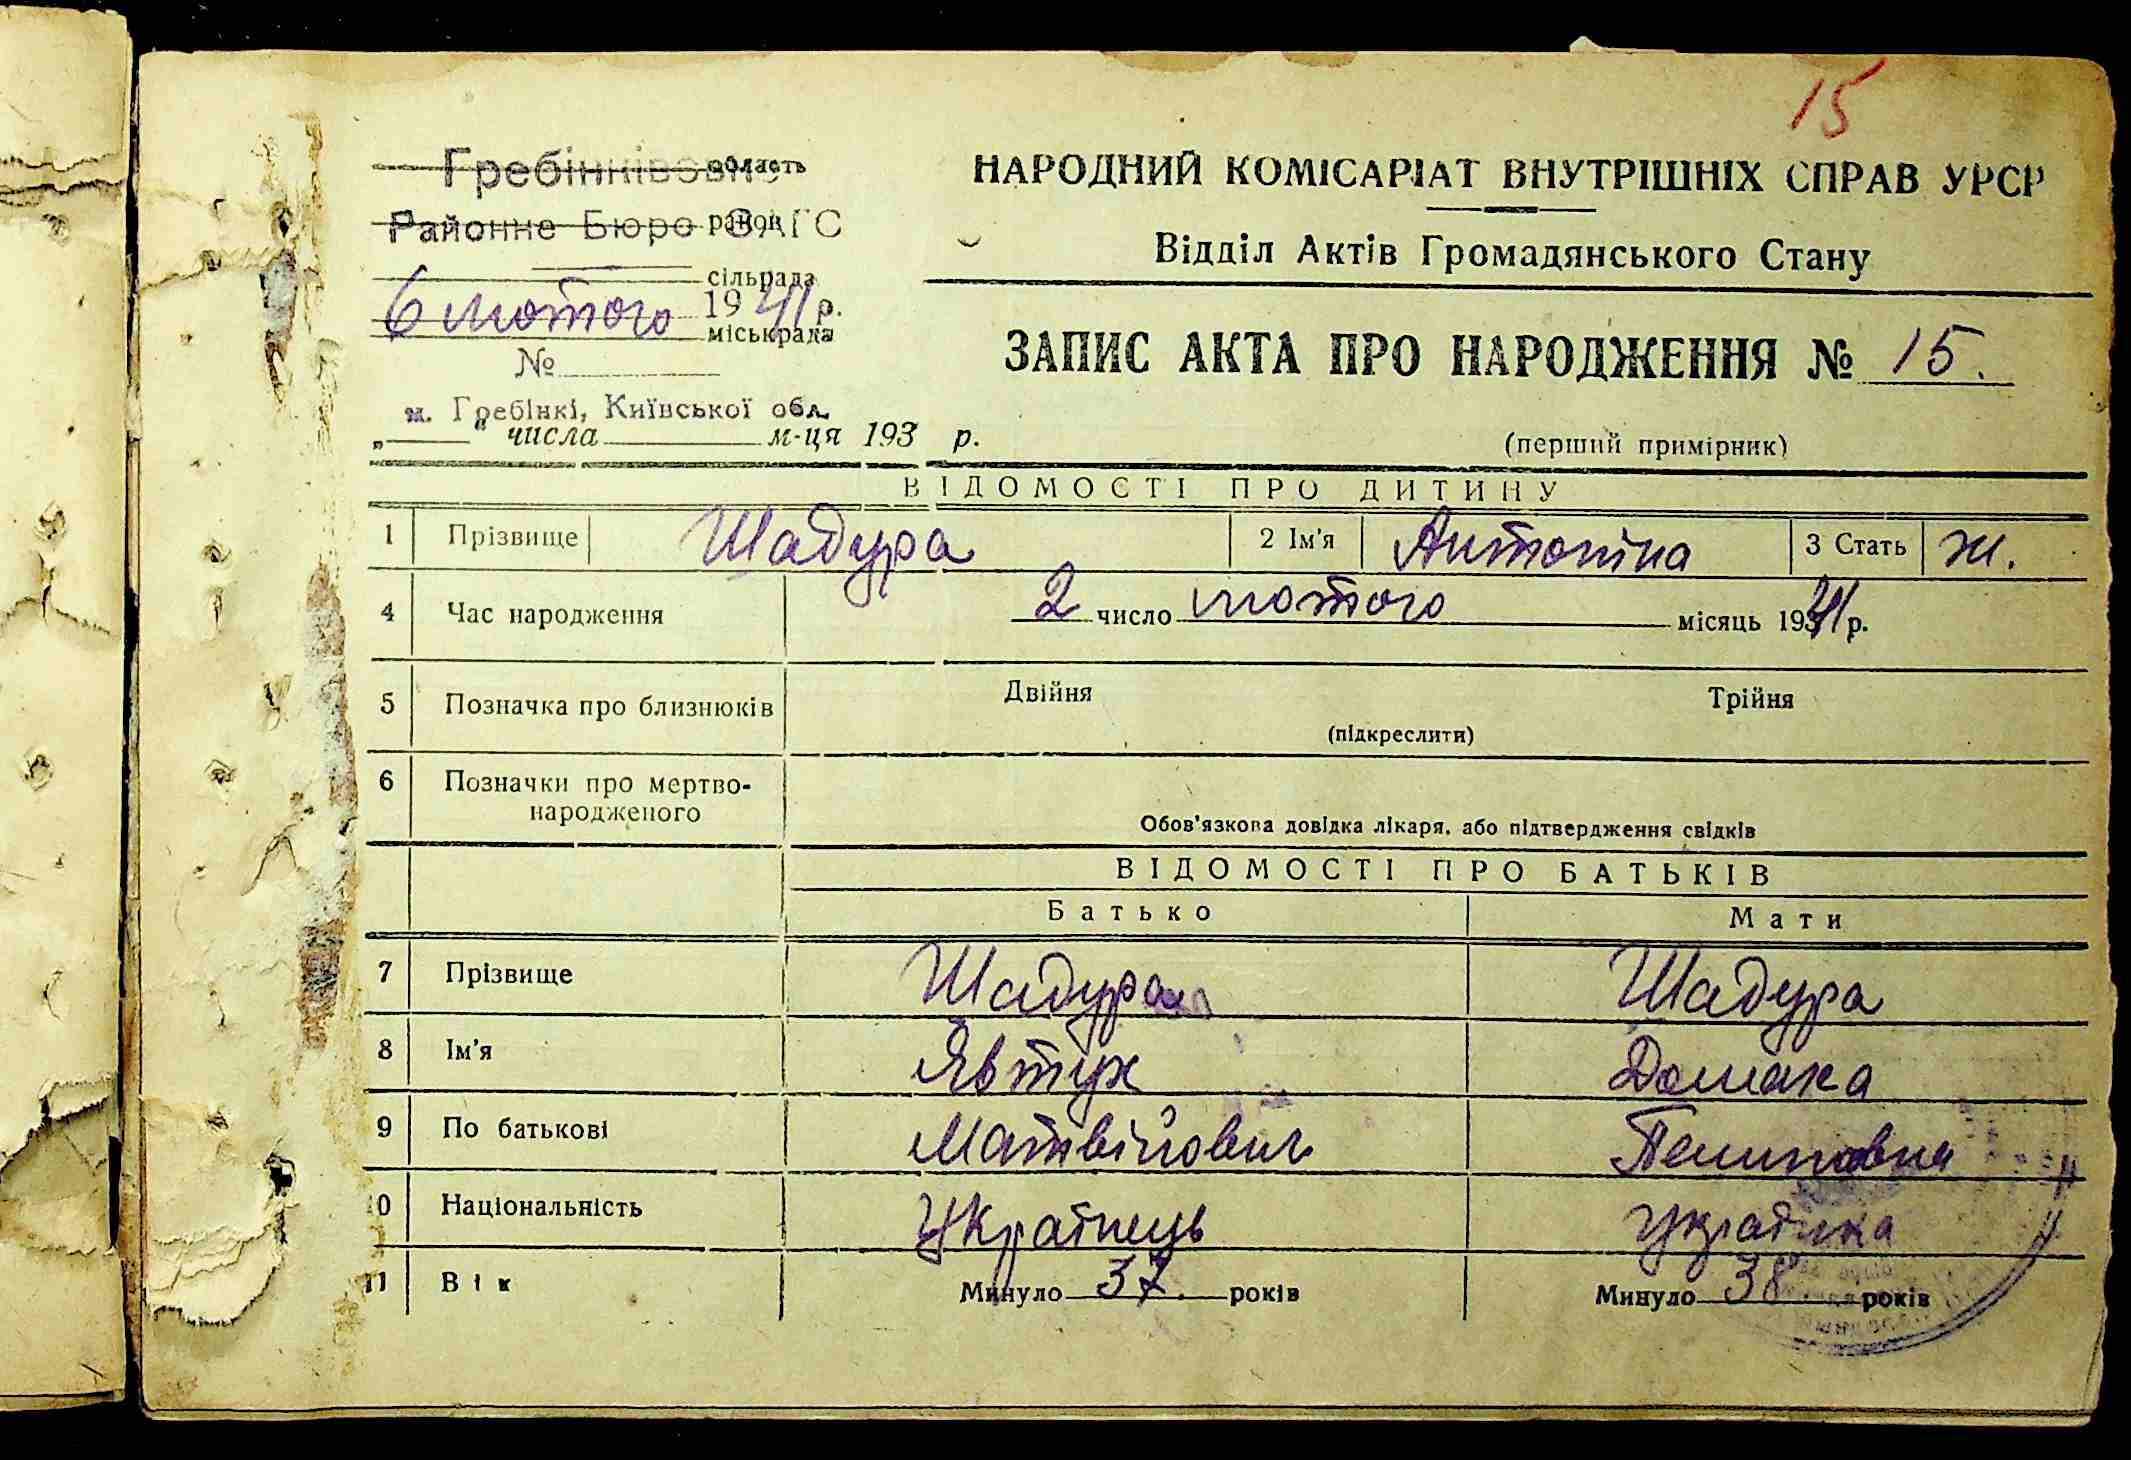 15
Гребінківське область
Районне Бюро ЗАГС район
сільрада
6 лютого 1941 р.
міськрада
№
м. Гребінкі, Київської обл.
„ “ числа м-ця 193 р.
НАРОДНИЙ КОМІСАРІАТ ВНУТРІШНІХ СПРАВ УРСР
Відділ Актів Громадянського Стану
ЗАПИС АКТА ПРО НАРОДЖЕННЯ № 15.
(перший примірник)
ВІДОМОСТІ ПРО ДИТИНУ
1 Прізвище Шадура 2 Ім'я Антоніна 3 Стать ж.
4 Час народження 2 число лютого місяць 1941 р.
5 Позначка про близнюків Двійня Трійня
(підкреслити)
6 Позначки про мертво-
народженого
Обов'язкова довідка лікаря, або підтвердження свідків
ВІДОМОСТІ ПРО БАТЬКІВ
Батько Мати
7 Прізвище Шадура Шадура
8 Ім'я Явтух Домаха
9 По батькові Матвійович
10 Національність Українець Українка
11 Вік Минуло 37. років Минуло 38 років